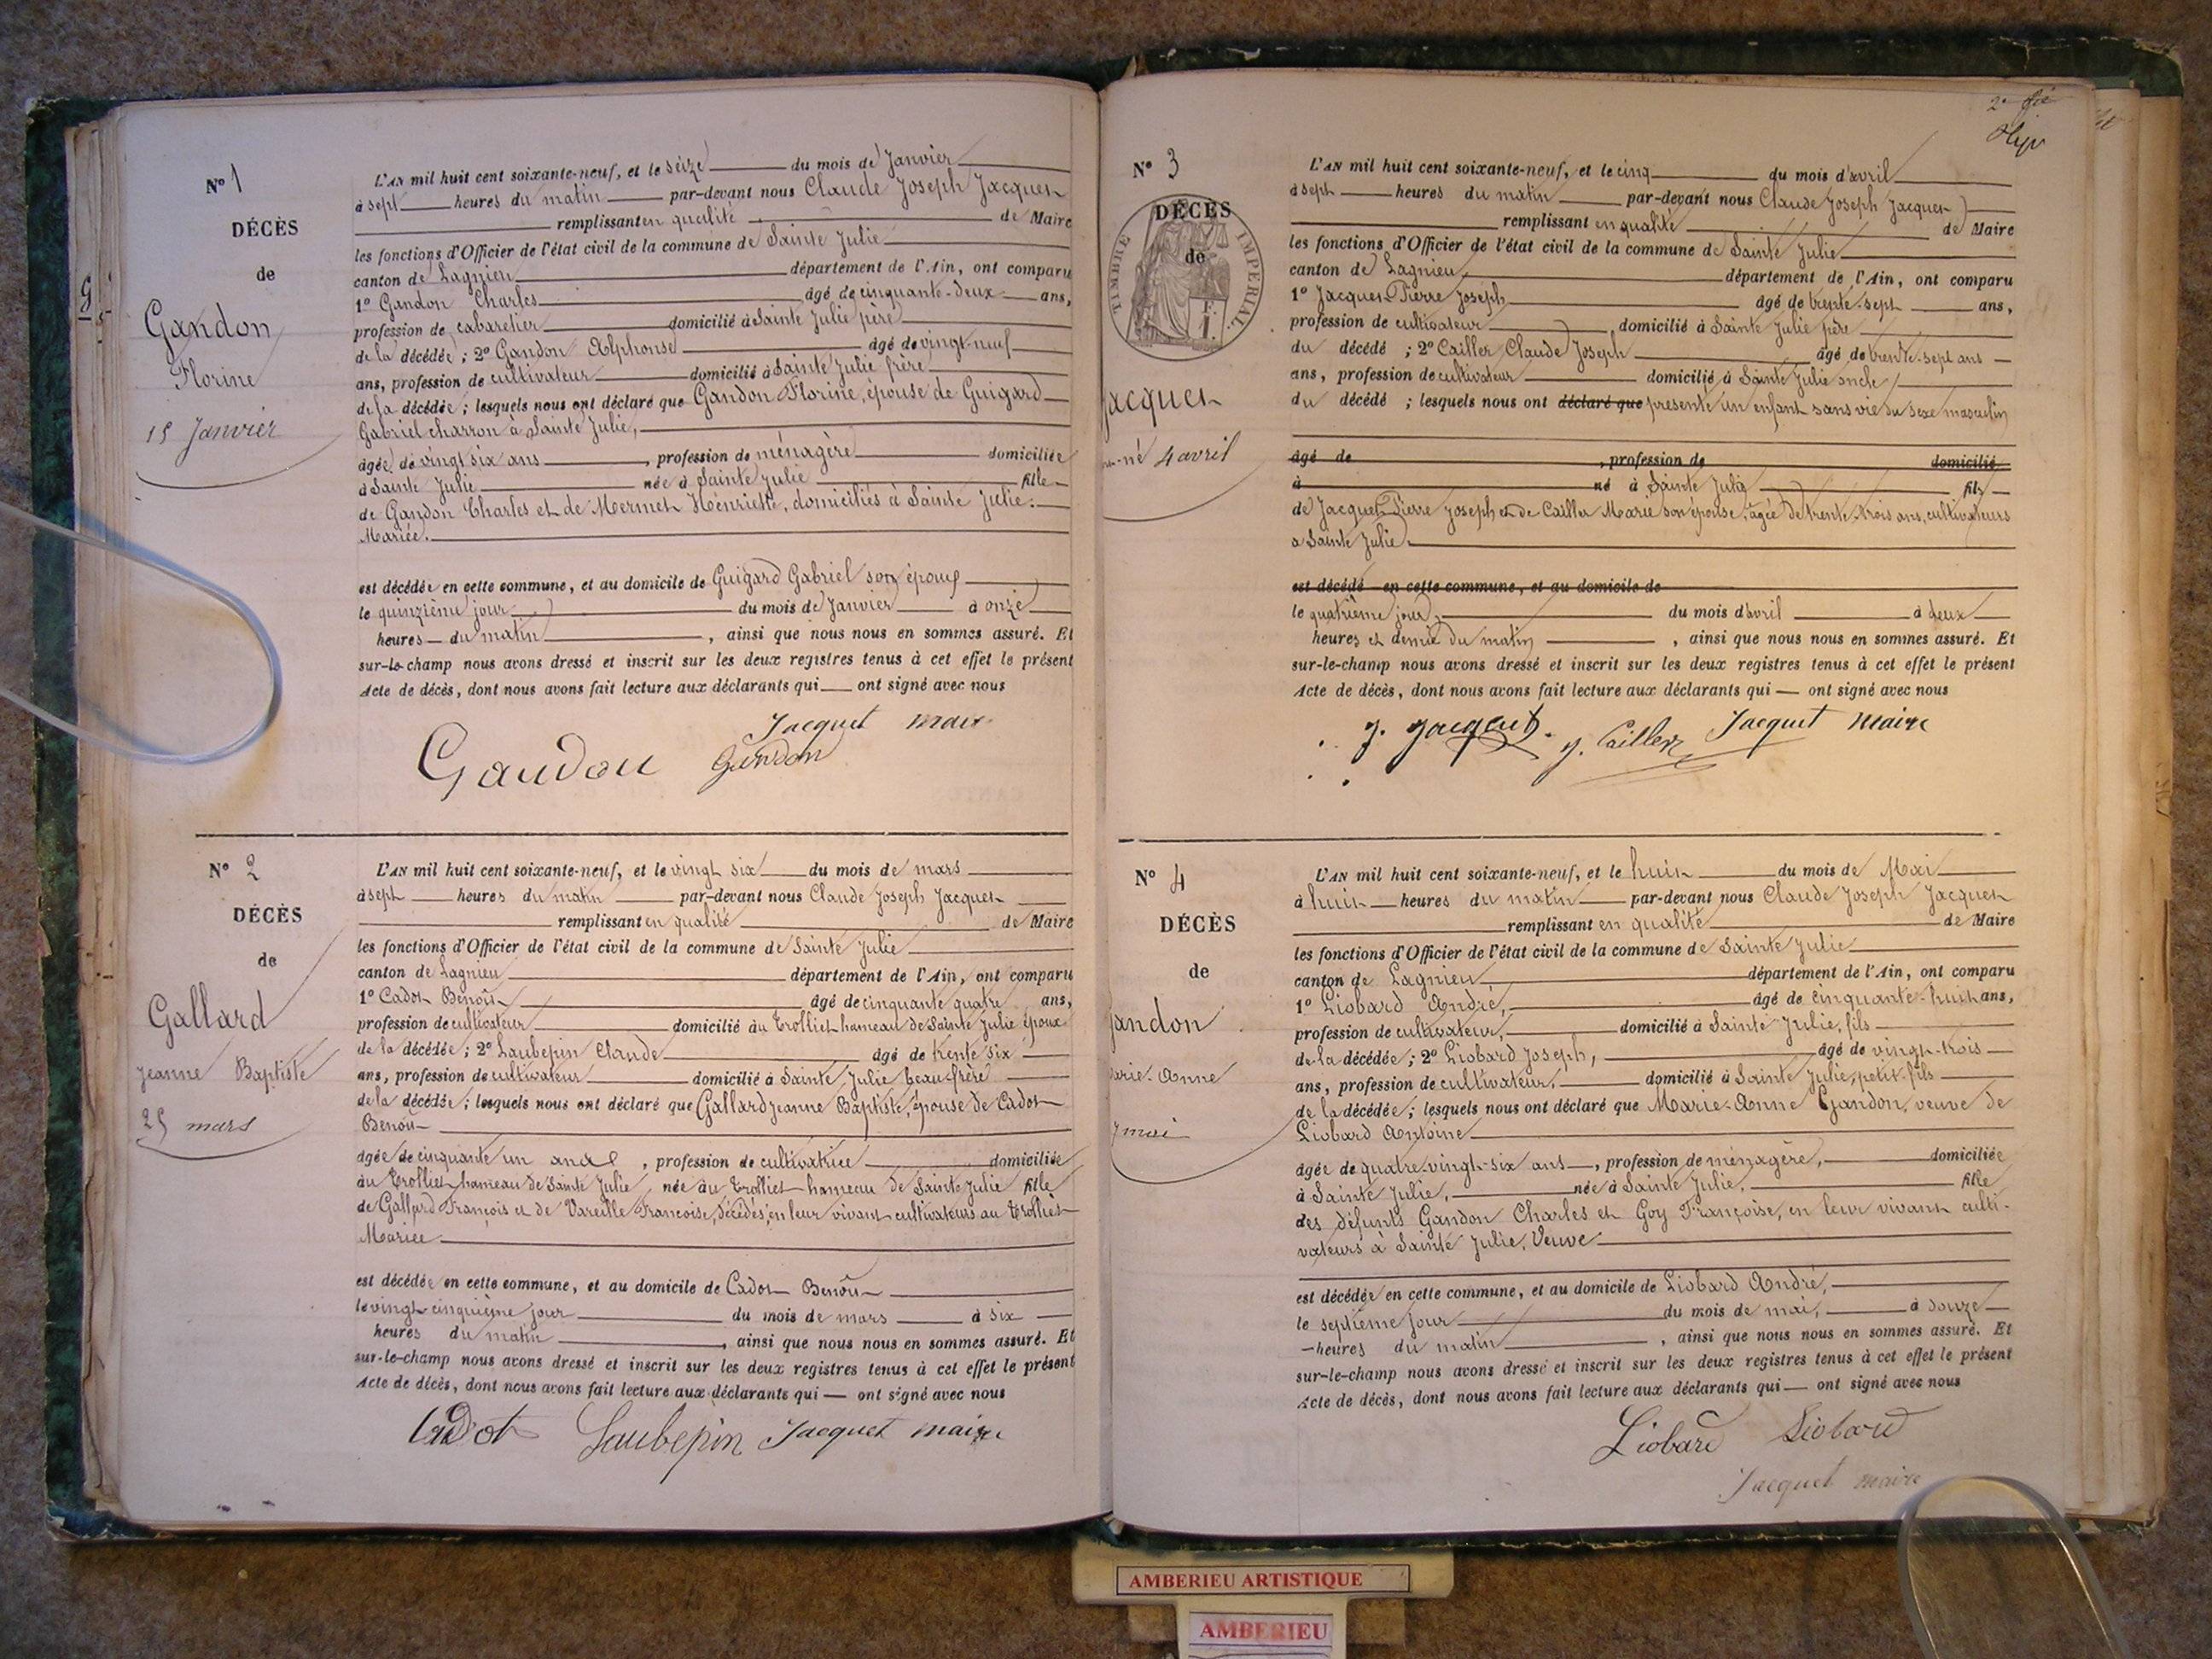 N° 1
DÉCÈS
de
Gandon
Florine
15 Janvier
L'AN mil huit cent soixante-neuf, et le seize du mois de Janvier
à sept heures du matin par-devant nous Claude Joseph Jacquet
remplissant en qualité de Maire
les fonctions d'Officier de l'état civil de la commune de Sainte Julie
canton de Lagnieu département de l'Ain, ont comparu
1° Gandon Charles âgé de cinquante-deux ans,
profession de cabaretier domicilié à Sainte Julie père
de la décédée ; 2° Gandon Alphonse âgé de vingt-neuf
ans, profession de cultivateur domicilié à Sainte Julie frère
de la décédée ; lesquels nous ont déclaré que Gandon Florine, épouse de Guigard
Gabriel charron à Sainte Julie,
âgée de vingt six ans, profession de ménagère domiciliée
à Sainte Julie née à Sainte Julie fille
de Gandon Charles et de Mermet Henriette, domiciliés à Sainte Julie.
Mariée.
est décédée en cette commune, et au domicile de Guigard Gabriel son époux
le quinzième jour du mois de Janvier à onze
heures du matin, ainsi que nous nous en sommes assuré. Et
sur-le-champ nous avons dressé et inscrit sur les deux registres tenus à cet effet le présent
Acte de décès, dont nous avons fait lecture aux déclarants qui ont signé avec nous
Jacquet maire
Gandon Gandon
N° 2
DÉCÈS
de
Gallard
Jeanne Baptiste
25 mars
L'AN mil huit cent soixante-neuf, et le vingt six du mois de mars
à sept heures du matin par-devant nous Claude Joseph Jacquet
remplissant en qualité de Maire
les fonctions d'Officier de l'état civil de la commune de Sainte Julie
canton de Lagnieu département de l'Ain, ont comparu
1° Cadot Benoît âgé de cinquante quatre ans,
profession de cultivateur domicilié au Trolliet hameau de Sainte Julie époux
de la décédée ; 2° Laubepin Claude âgé de trente six
ans, profession de cultivateur domicilié à Sainte Julie beau-frère
de la décédée ; lesquels nous ont déclaré que Gallard Jeanne Baptiste, épouse de Cadot
Benoît
âgée de cinquante un ans, profession de cultivatrice domiciliée
au Trolliet hameau de Sainte Julie, née au Trolliet hameau de Sainte Julie fille
de Gallard François et de Vareille Francoise, décédés, en leur vivant cultivateurs au Trolliet
Mariée.
est décédée en cette commune, et au domicile de Cadot Benoît
le vingt-cinquième jour du mois de mars à six
heures du matin, ainsi que nous nous en sommes assuré. Et
sur-le-champ nous avons dressé et inscrit sur les deux registres tenus à cet effet le présent
Acte de décès, dont nous avons fait lecture aux déclarants qui ont signé avec nous
Cadot Laubepin Jacquet maire
2e
N° 3
DÉCÈS
de
TIMBRE IMPERIAL
Jacquet
né 4 avril
L'AN mil huit cent soixante-neuf, et le cinq du mois d'avril
à sept heures du matin par-devant nous Claude Joseph Jacquet
remplissant en qualité de Maire
les fonctions d'Officier de l'état civil de la commune de Sainte Julie
canton de Lagnieu département de l'Ain, ont comparu
1° Jacquet Pierre Joseph âgé de trente-sept ans,
profession de cultivateur, domicilié à Sainte Julie père
du décédé ; 2° Cailler Claude Joseph âgé de trente-sept ans
ans, profession de cultivateur domicilié à Sainte Julie oncle
du décédé ; lesquels nous ont déclaré que présenté un enfant sans vie du sexe masculin
âgé de, profession de domicilié
à né à Sainte Julie fils
de Jacquet Pierre Joseph et de Cailler Marie son épouse, âgée de trente-trois ans, cultivateurs
a Sainte Julie.
est décédé en cette commune, et au domicile de
le quatrième jour, du mois d'avril à deux
heures et demie du matin, ainsi que nous nous en sommes assuré. Et
sur-le-champ nous avons dressé et inscrit sur les deux registres tenus à cet effet le présent
Acte de décès, dont nous avons fait lecture aux déclarants qui ont signé avec nous
J. Jacquet. J. Cailler Jacquet maire
N° 4
DÉCÈS
de
Gandon
Marie-Anne
7 mai
L'AN mil huit cent soixante-neuf, et le huit du mois de Mai
à huit heures du matin par-devant nous Claude Joseph Jacquet
remplissant en qualité de Maire
les fonctions d'Officier de l'état civil de la commune de Sainte Julie
canton de Lagnieu département de l'Ain, ont comparu
1° Liobard André, âgé de cinquante-huit ans,
profession de cultivateur, domicilié à Sainte-Julie, fils
de la décédée ; 2° Liobard Joseph, âgé de vingt-trois
ans, profession de cultivateur, domicilié à Sainte Julie, petit-fils
de la décédée ; lesquels nous ont déclaré que Marie-Anne Gandon, veuve de
Liobard Antoine
âgée de quatre-vingt-six ans, profession de ménagère, domiciliée
à Sainte Julie, née à Sainte Julie, fille
des défunts Gandon Charles et Goy Françoise, en leur vivant culti-
vateurs à Sainte Julie. Veuve
est décédée en cette commune, et au domicile de Liobard André,
le septième jour du mois de mai, à douze
heures du matin, ainsi que nous nous en sommes assuré. Et
sur-le-champ nous avons dressé et inscrit sur les deux registres tenus à cet effet le présent
Acte de décès, dont nous avons fait lecture aux déclarants qui ont signé avec nous
Liobard Liobard
Jacquet maire
AMBERIEU ARTISTIQUE
AMBERIEU